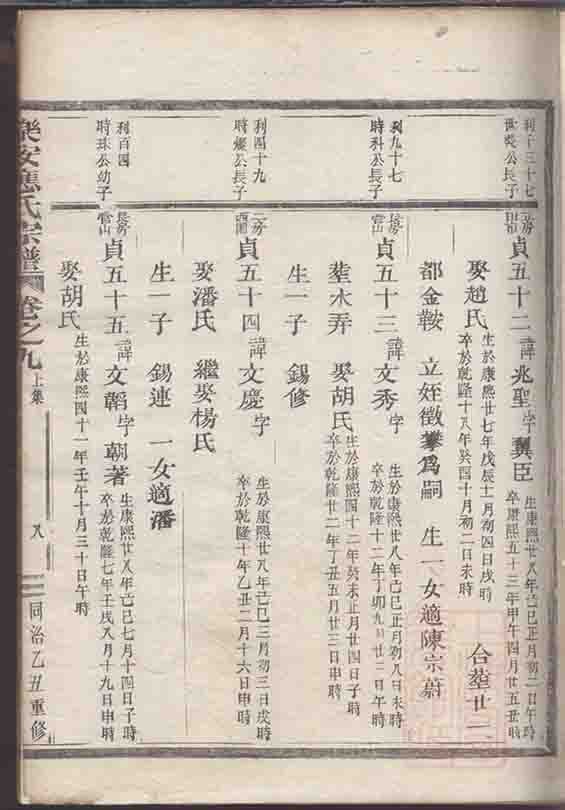 利一百三十七
世榮公長子
貞五十二 諱兆聖 字冀臣 生康熙廿八年己巳正月初二日午時
卒康熙五十三年甲午四月廿五丑時
娶趙氏 生於康熙廿七年戊辰十一月初四日戌時
卒於乾隆十八年癸酉十月初二日未時 合塟廿二
都金鞍 立姪徵攀爲嗣 生一女適陳宗蔚
利九十七
時科公長子
長房
雷山
貞五十三 諱文秀 字 生於康熙廿八年己巳正月初八日未時
卒於乾隆十二年丁卯九月廿三日午時
塟木弄 娶胡氏 生於康熙四十二年癸未正月廿四日子時
卒於乾隆廿二年丁丑五月廿三日申時
生一子 錫修
利四十九
時燦公長子
二房
貞五十四 諱文慶 字 生於康熙廿八年己巳三月初三日戌時
卒於乾隆十年乙丑二月十六日申時
娶潘氏 繼娶楊氏
生一子 錫連 一女適潘
利百四
時珠公幼子
長房
雷山
貞五十五 諱文韜 字朝著 生康熙廿八年己巳七月十四日子時
卒於乾隆七年壬戌八月十九日申時
娶胡氏 生於康熙四十一年壬午十月三十日午時
樂安應氏宗譜 卷之九 上集 八 同治乙丑重修